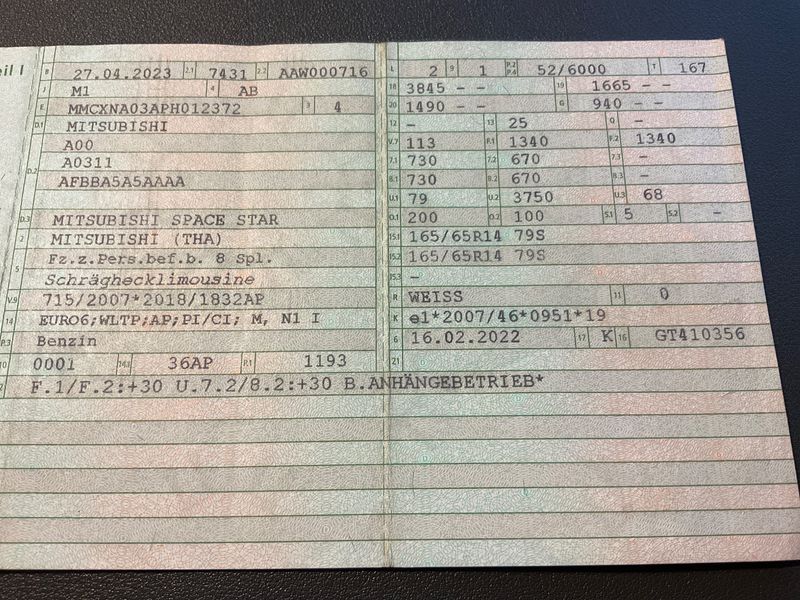 eil I
B 27.04.2023 2.1 7431 2.2 AAW000716
J M1 4 AB
E MMCXNA03APH012372 3 4
D.1 MITSUBISHI
A00
D.2 A0311
AFBBA5A5AAAA
D.3 MITSUBISHI SPACE STAR
2 MITSUBISHI (THA)
5 Fz.z.Pers.bef.b. 8 Spl.
Schräghecklimousine
V.9 715/2007*2018/1832AP
14 EURO6;WLTP;AP;PI/CI; M, N1 I
P.3 Benzin
10 0001 14.1 36AP P.1 1193
L 2 9 1 P.2 P.4 52/6000 T 167
18 3845 - - 19 1665 - -
20 1490 - - G 940 - -
12 - 13 25 Q -
V.7 113 F.1 1340 F.2 1340
7.1 730 7.2 670 7.3 -
8.1 730 8.2 670 8.3 -
U.1 79 U.2 3750 U.3 68
O.1 200 O.2 100 S.1 5 S.2 -
15.1 165/65R14 79S
15.2 165/65R14 79S
15.3 -
R WEISS 11 0
K e1*2007/46*0951*19
6 16.02.2022 17 K 16 GT410356
21
F.1/F.2:+30 U.7.2/8.2:+30 B.ANHÄNGEBETRIEB*